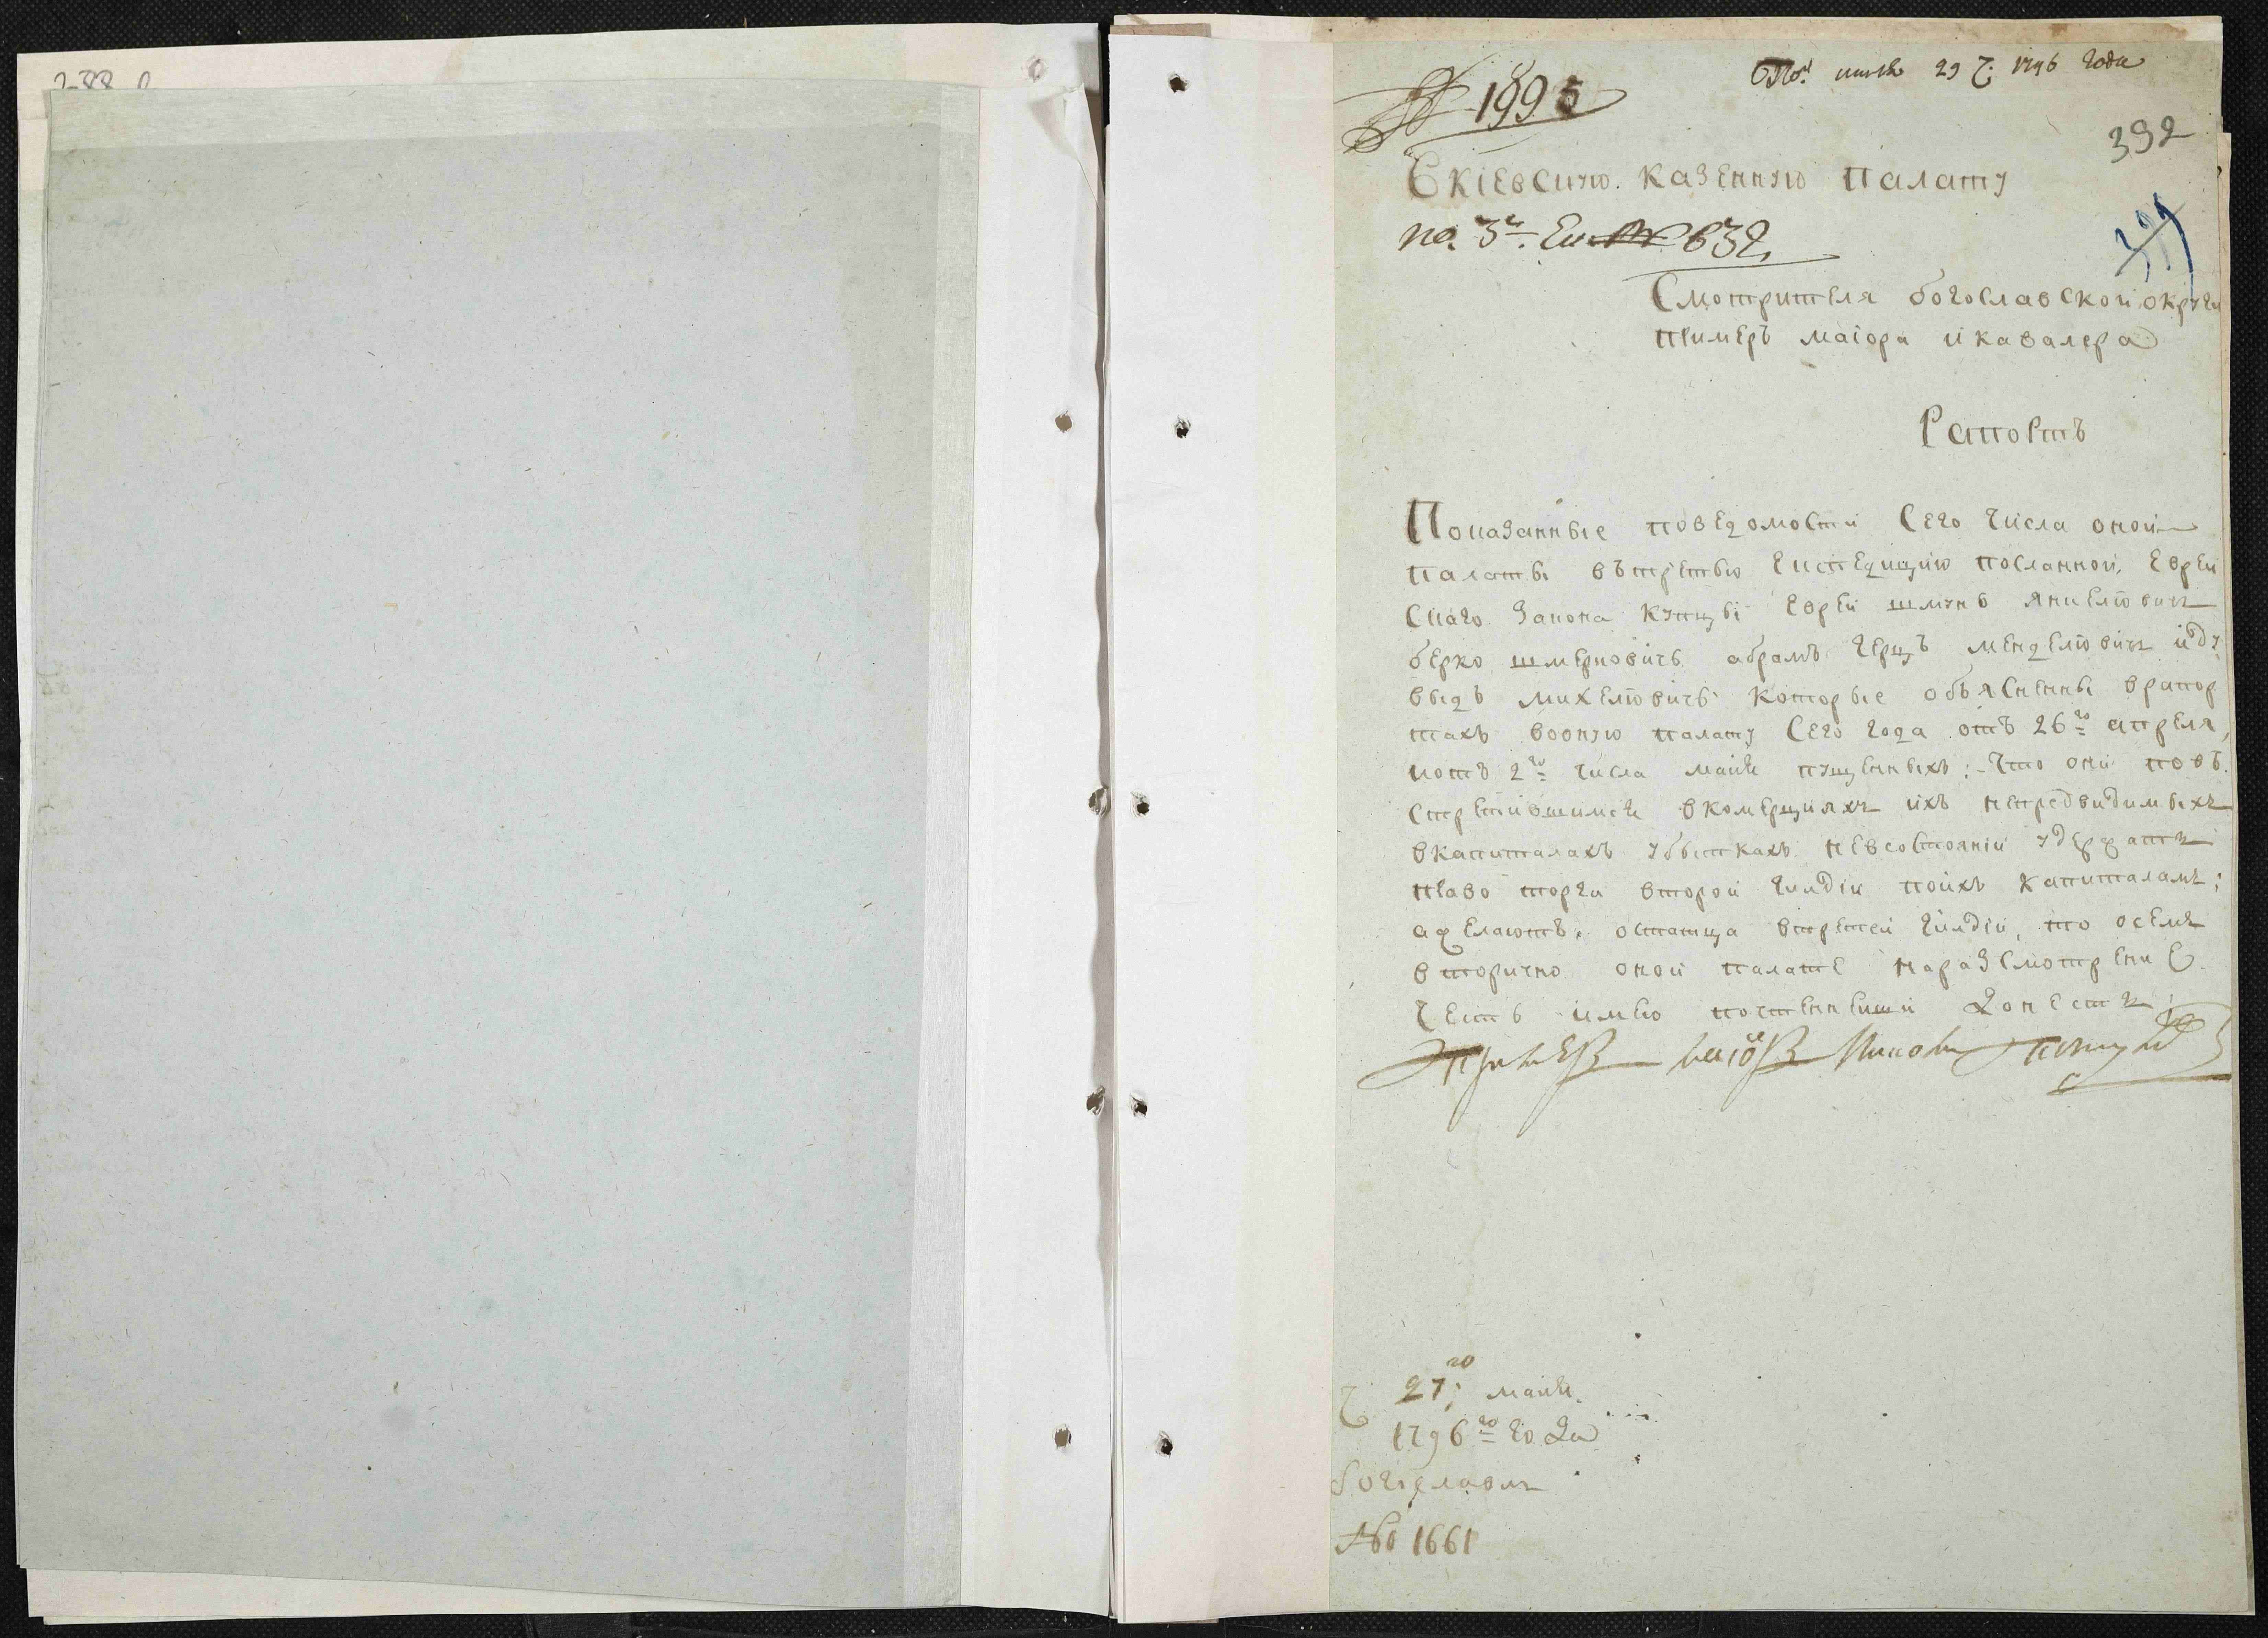 № 1995
Пол: маія 29 ч: 1796 года
392
Вкіевскую казенную палату
по 3й Ек 632
Смотрителя богославской округи
примеръ маіора и кавалера
Рапортъ
Показанные поведомости Сего числа оной
палаты въ третью експедицию посланной, еврей
скаго закона купцы еврей шмунь янкелювичь
берко шмерковичь абрамъ герцъ менделювичь иду
выдъ михелювичь которые объясненны врапор
тахъ вооную палату Сего года отъ 26го апреля,
иотъ 2го числа маия пущенныхъ: что они повъ
стретившимся вкомерцияхъ ихъ непредвидимыхъ
вкапиталахъ убыткахъ невсостоянии удержать
право торга второй гилдіи поихъ капиталамъ;
а желаютъ остатца втретей гилдіи, то осемъ
вторично оной палате наразсмотрение
честь имею почтеннейши донесть;
примеръ маіоръ
ч 27го маия
1796го года
богуславль
№ 1661